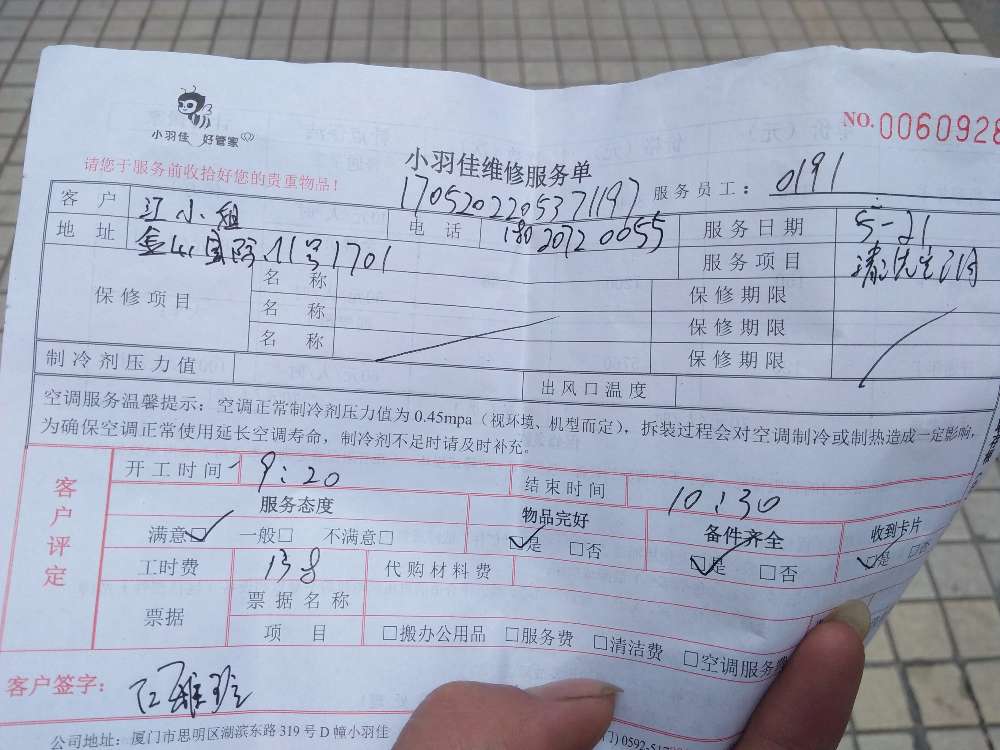 小羽佳 好管家
NO.0060928
请您于服务前收拾好您的贵重物品！
小羽佳维修服务单
170520220537
1197
服务员工：0191
客户 江小姐 电话 18020720055 服务日期 5-21
地址 金山国际11号1701 服务项目
保修项目 名称 保修期限
名称 保修期限
名称 保修期限
制冷剂压力值 出风口温度
空调服务温馨提示：空调正常制冷剂压力值为 0.45mpa（视环境、机型而定），拆装过程会对空调制冷或制热造成一定影响，
为确保空调正常使用延长空调寿命，制冷剂不足时请及时补充。
客户评定
开工时间 9:20 结束时间 10:30
服务态度 物品完好 备件齐全 收到卡片
满意□ 一般□ 不满意□ □是 □否 □是 □否 □是 □否
工时费 138 代购材料费
票据 票据名称
项目 □搬办公用品 □服务费 □清洁费 □空调服务
客户签字：
公司地址：厦门市思明区湖滨东路 319 号 D 幢小羽佳 0592-517